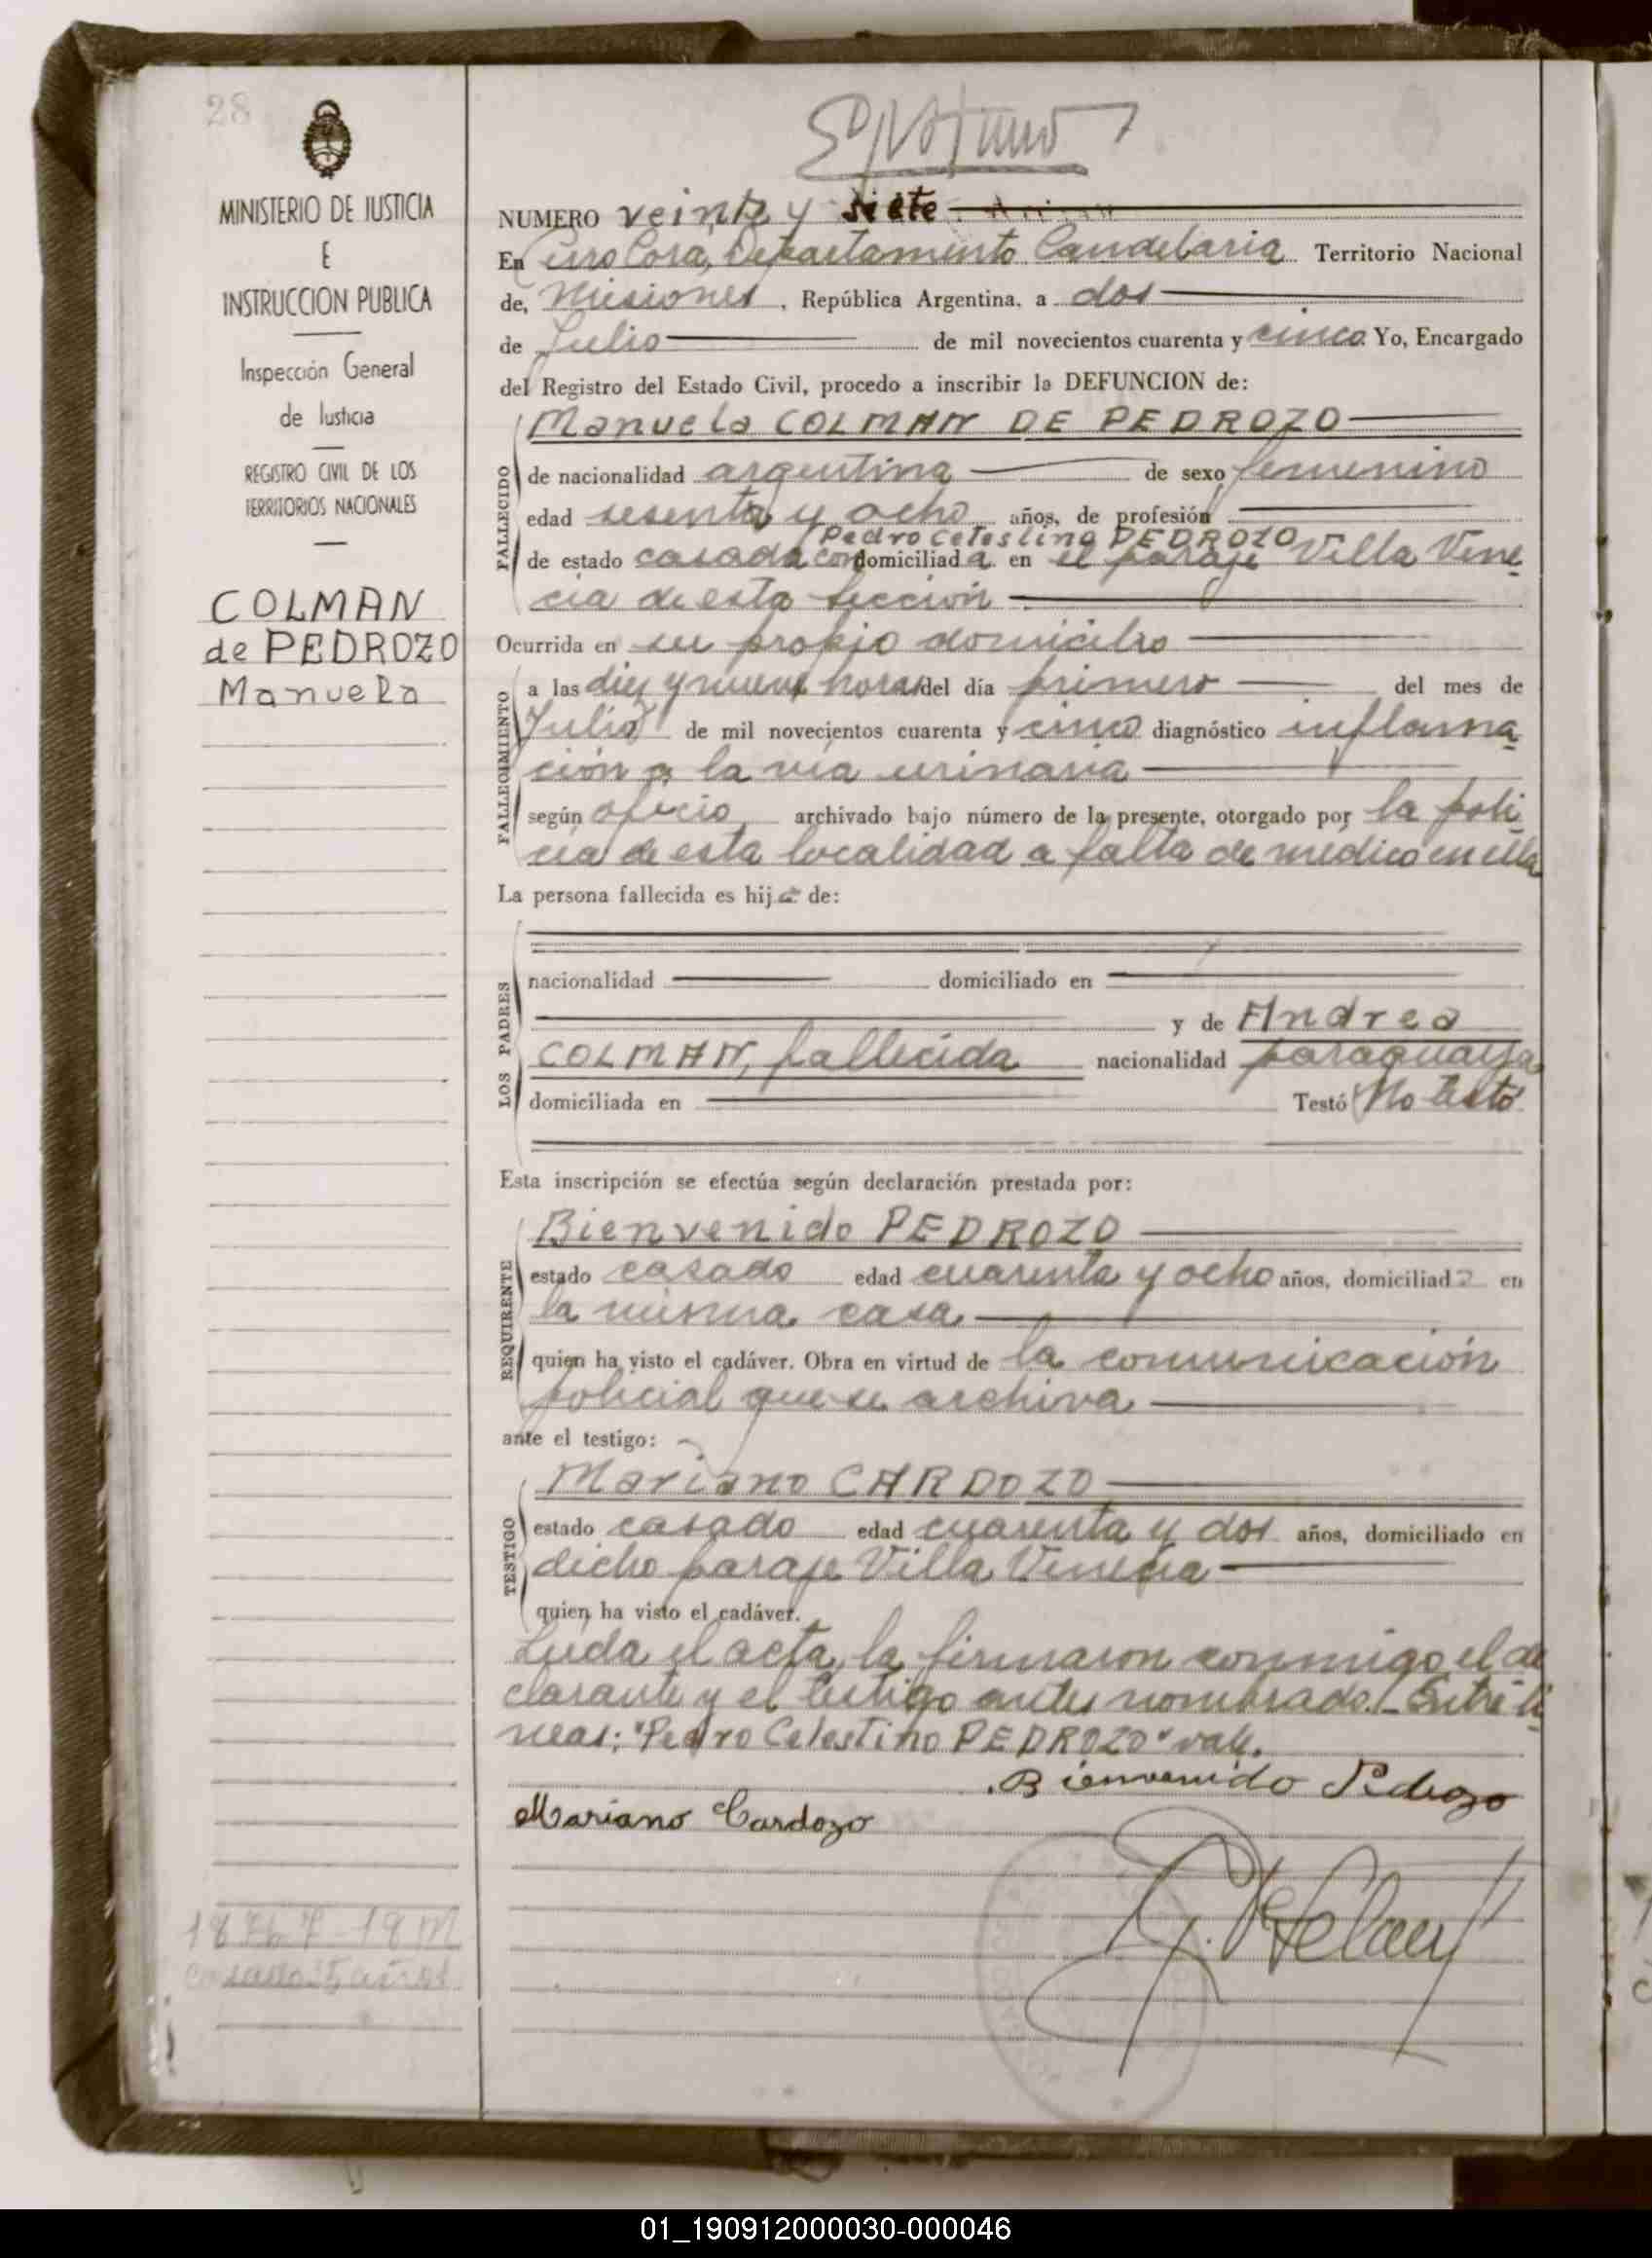 28
MINISTERIO DE JUSTICIA
E
INSTRUCCION PUBLICA
Inspección General
de Justicia
REGISTRO CIVIL DE LOS
TERRITORIOS NACIONALES
COLMAN
de PEDROZO
Manuela
NUMERO veinte y siete
En Cerro Corá, Departamento Candelaria Territorio Nacional
de, Misiones, República Argentina, a dos
de Julio de mil novecientos cuarenta y cinco Yo, Encargado
del Registro del Estado Civil, procedo a inscribir la DEFUNCION de:
FALLECIDO
Manuela COLMAN DE PEDROZO
de nacionalidad argentina de sexo femenino
edad sesenta y ocho años, de profesión
Pedro Celestino PEDROZO
de estado casada con domiciliada en el paraje Villa Vene
cia de esta sección
Ocurrida en su propio domicilio
FALLECIMIENTO
a las diez y nueve horas del día primero del mes de
Julio de mil novecientos cuarenta y cinco diagnóstico inflama
ción a la vía urinaria
según oficio archivado bajo número de la presente, otorgado por la poli
cía de esta localidad a falta de médico en ella
La persona fallecida es hija de:
LOS PADRES
nacionalidad domiciliado en
y de Andrea
COLMAN, fallecida nacionalidad paraguaya
domiciliada en Testó No testó
Esta inscripción se efectúa según declaración prestada por:
REQUIRENTE
Bienvenido PEDROZO
estado casado edad cuarenta y ocho años, domiciliado en
la misma casa
quien ha visto el cadáver. Obra en virtud de la comunicación
policial que se archiva
ante el testigo:
TESTIGO
Mariano CARDOZO
estado casado edad cuarenta y dos años, domiciliado en
dicho paraje Villa Venecia
quien ha visto el cadáver.
Leída el acta, la firmaron conmigo el de
clarante y el testigo antes nombrado.- Entre lí
neas: "Pedro Celestino PEDROZO" vale.
Bienvenido Pedrozo
Mariano Cardozo
01_190912000030-000046